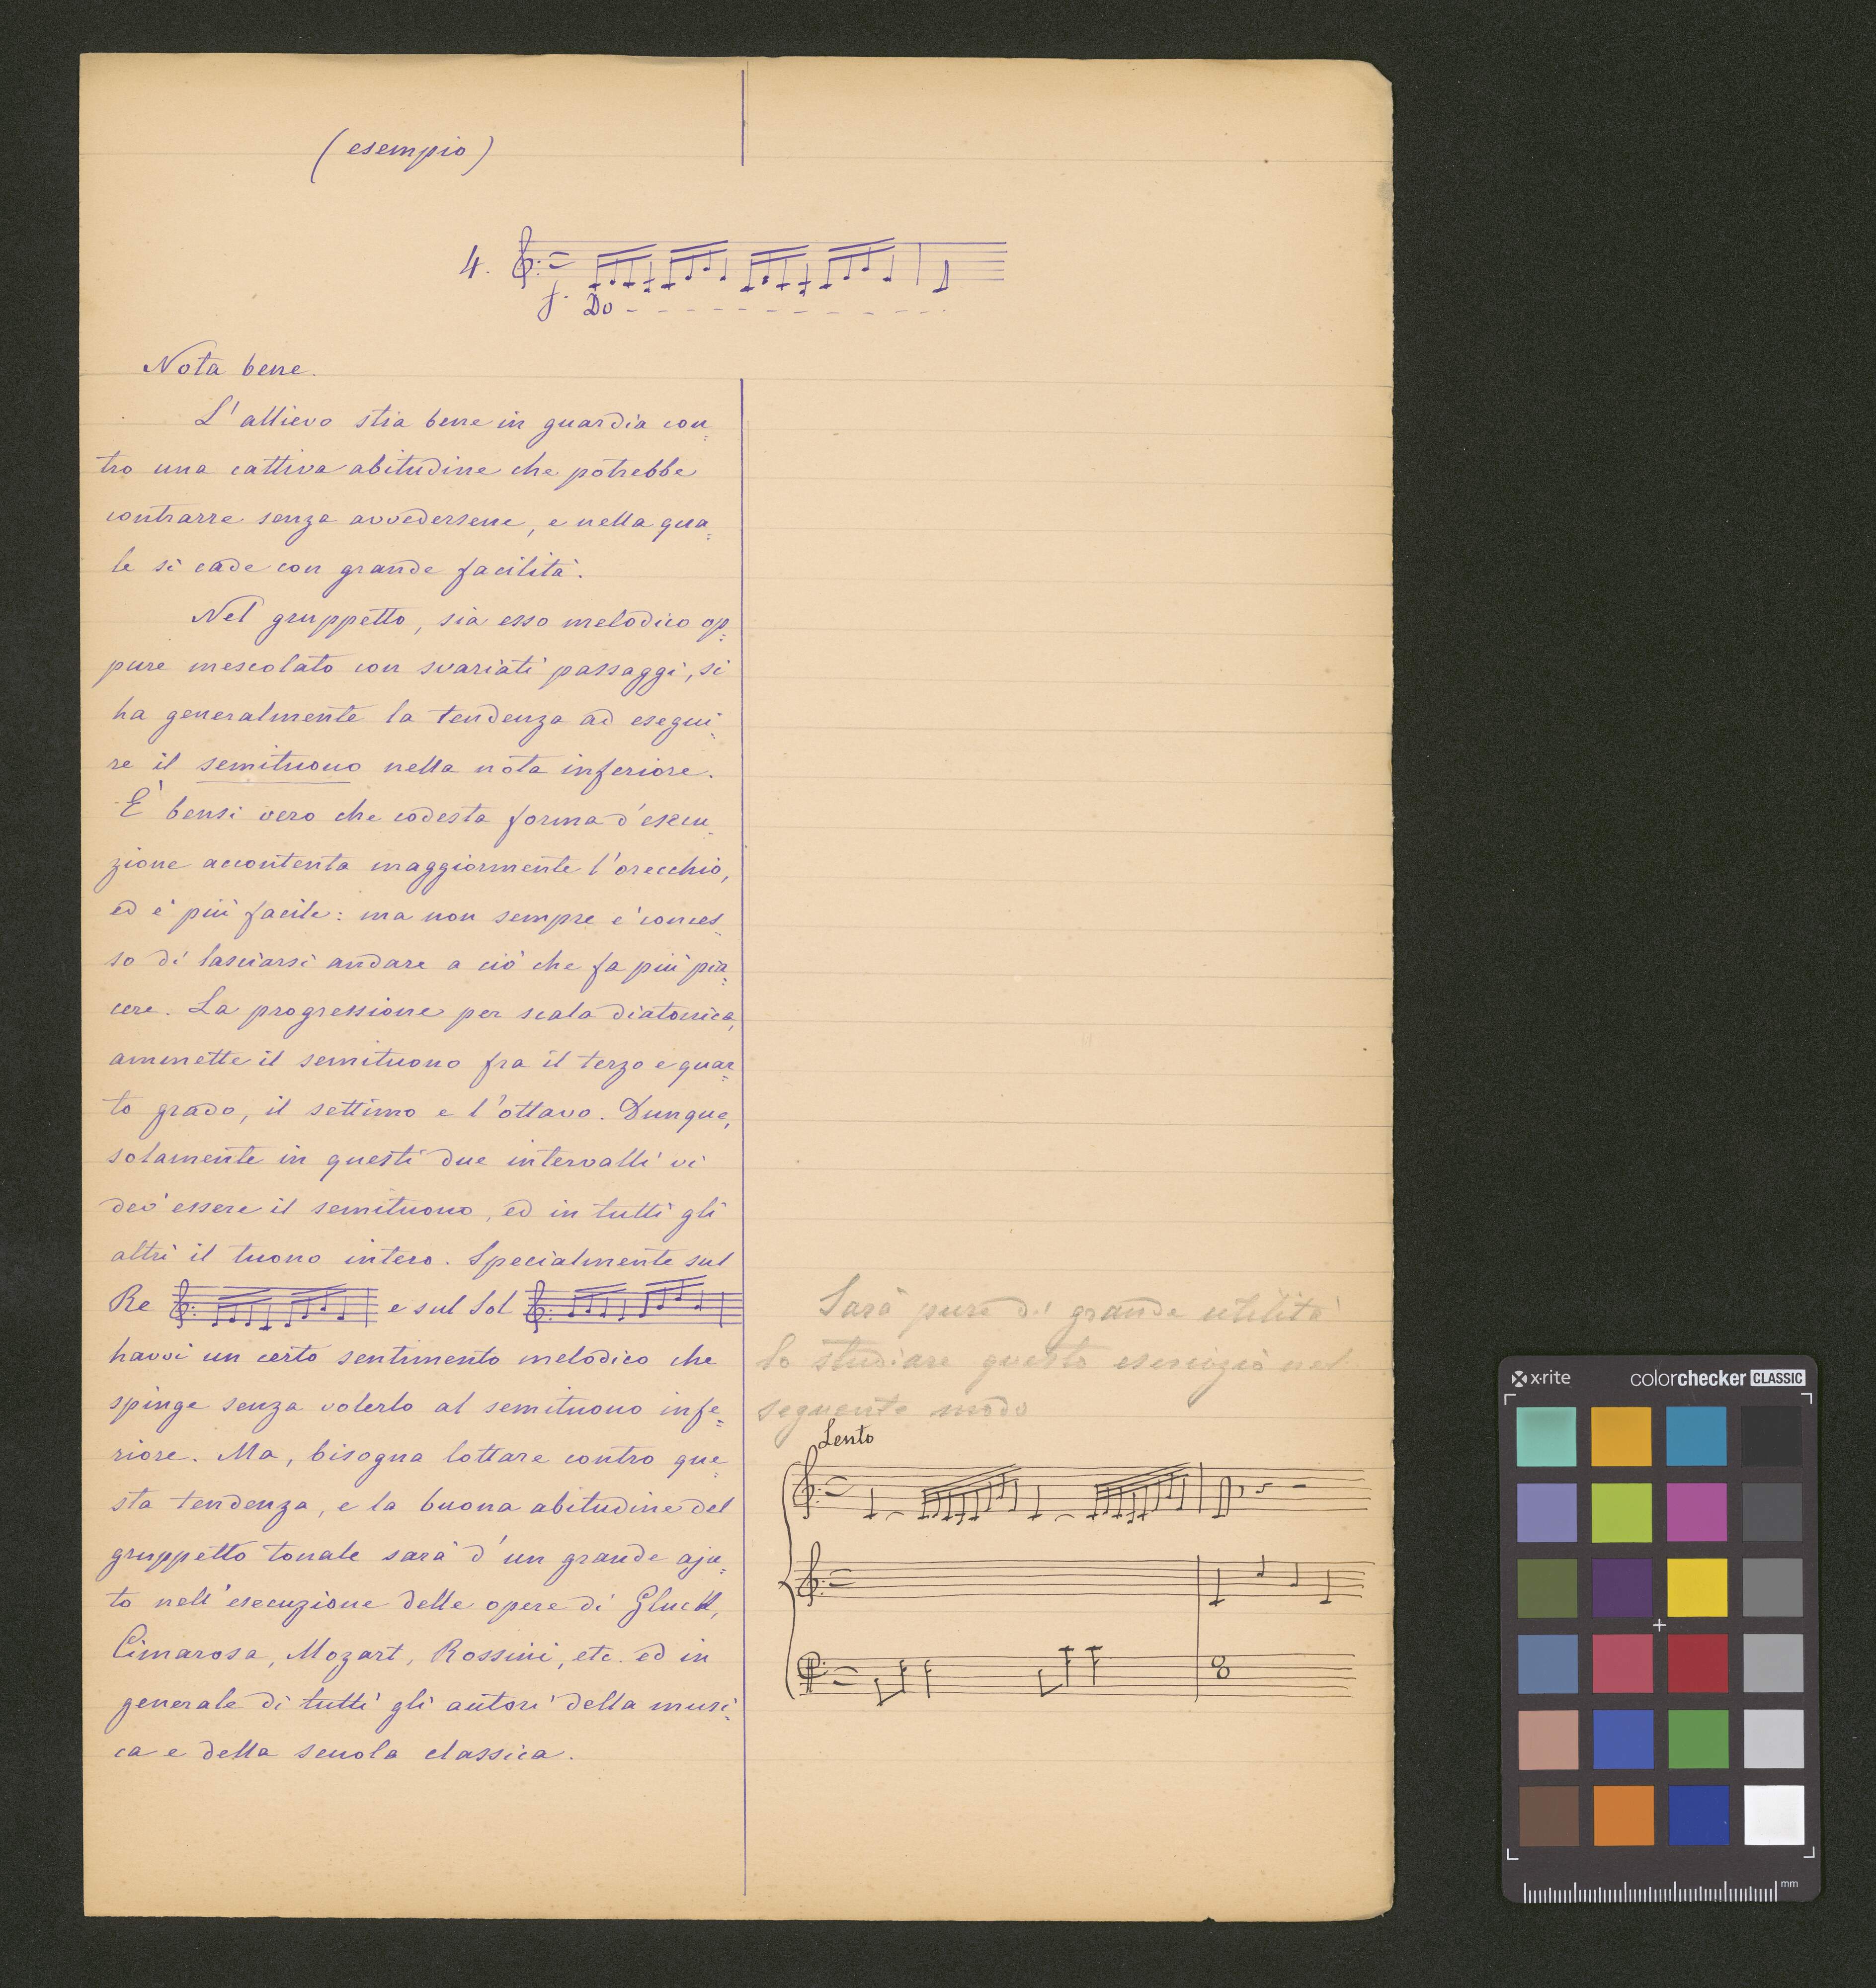 (esempio)
4.
f. Do - - - - - - - - - - -
Nota bene.
L'allievo stia bene in guardia con=
tro una cattiva abitudine che potrebbe
contrarre senza avvedersene, e nella qua=
le si cade con grande facilità.
Nel gruppetto, sia esso melodico op=
pure mescolato con svariati passaggi, si
ha generalmente la tendenza ad esegui=
re il semituono nella nota inferiore.
È bensì vero che codesta forma d'esecu=
zione accontenta maggiormente l'orecchio,
ed è più facile: ma non sempre è conces=
so di lasciarsi andare a ciò che fa più pia=
cere. La progressione per scala diatonica,
ammette il semituono fra il terzo e quar=
to grado, il settimo e l'ottavo. Dunque,
solamente in questi due intervalli vi
dev'essere il semituono, ed in tutti gli
altri il tuono intero. Specialmente sul
Re e sul Sol
havvi un certo sentimento melodico che
spinge senza volerlo al semituono infe=
riore. Ma, bisogna lottare contro que=
sta tendenza, e la buona abitudine del
gruppetto tonale sarà d'un grande aju=
to nell'esecuzione delle opere di Gluck,
Cimarosa, Mozart, Rossini, etc. ed in
generale di tutti gli autori della musi=
ca e della scuola classica.
Sarà pure di grande utilità
lo studiare questo esercizio nel
seguente modo
Lento
x-rite colorchecker CLASSIC
mm